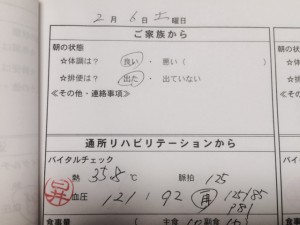 2月6日土曜日
ご家族から
朝の状態
☆体調は? 良い・悪い( )
☆排便は? 出た・出ていない
≪その他・連絡事項≫
通所リハビリテーションから
バイタルチェック
熱 35.8℃ 脈拍 125
血圧 121 / 92 再 125/85
食事量 主食 10 副食